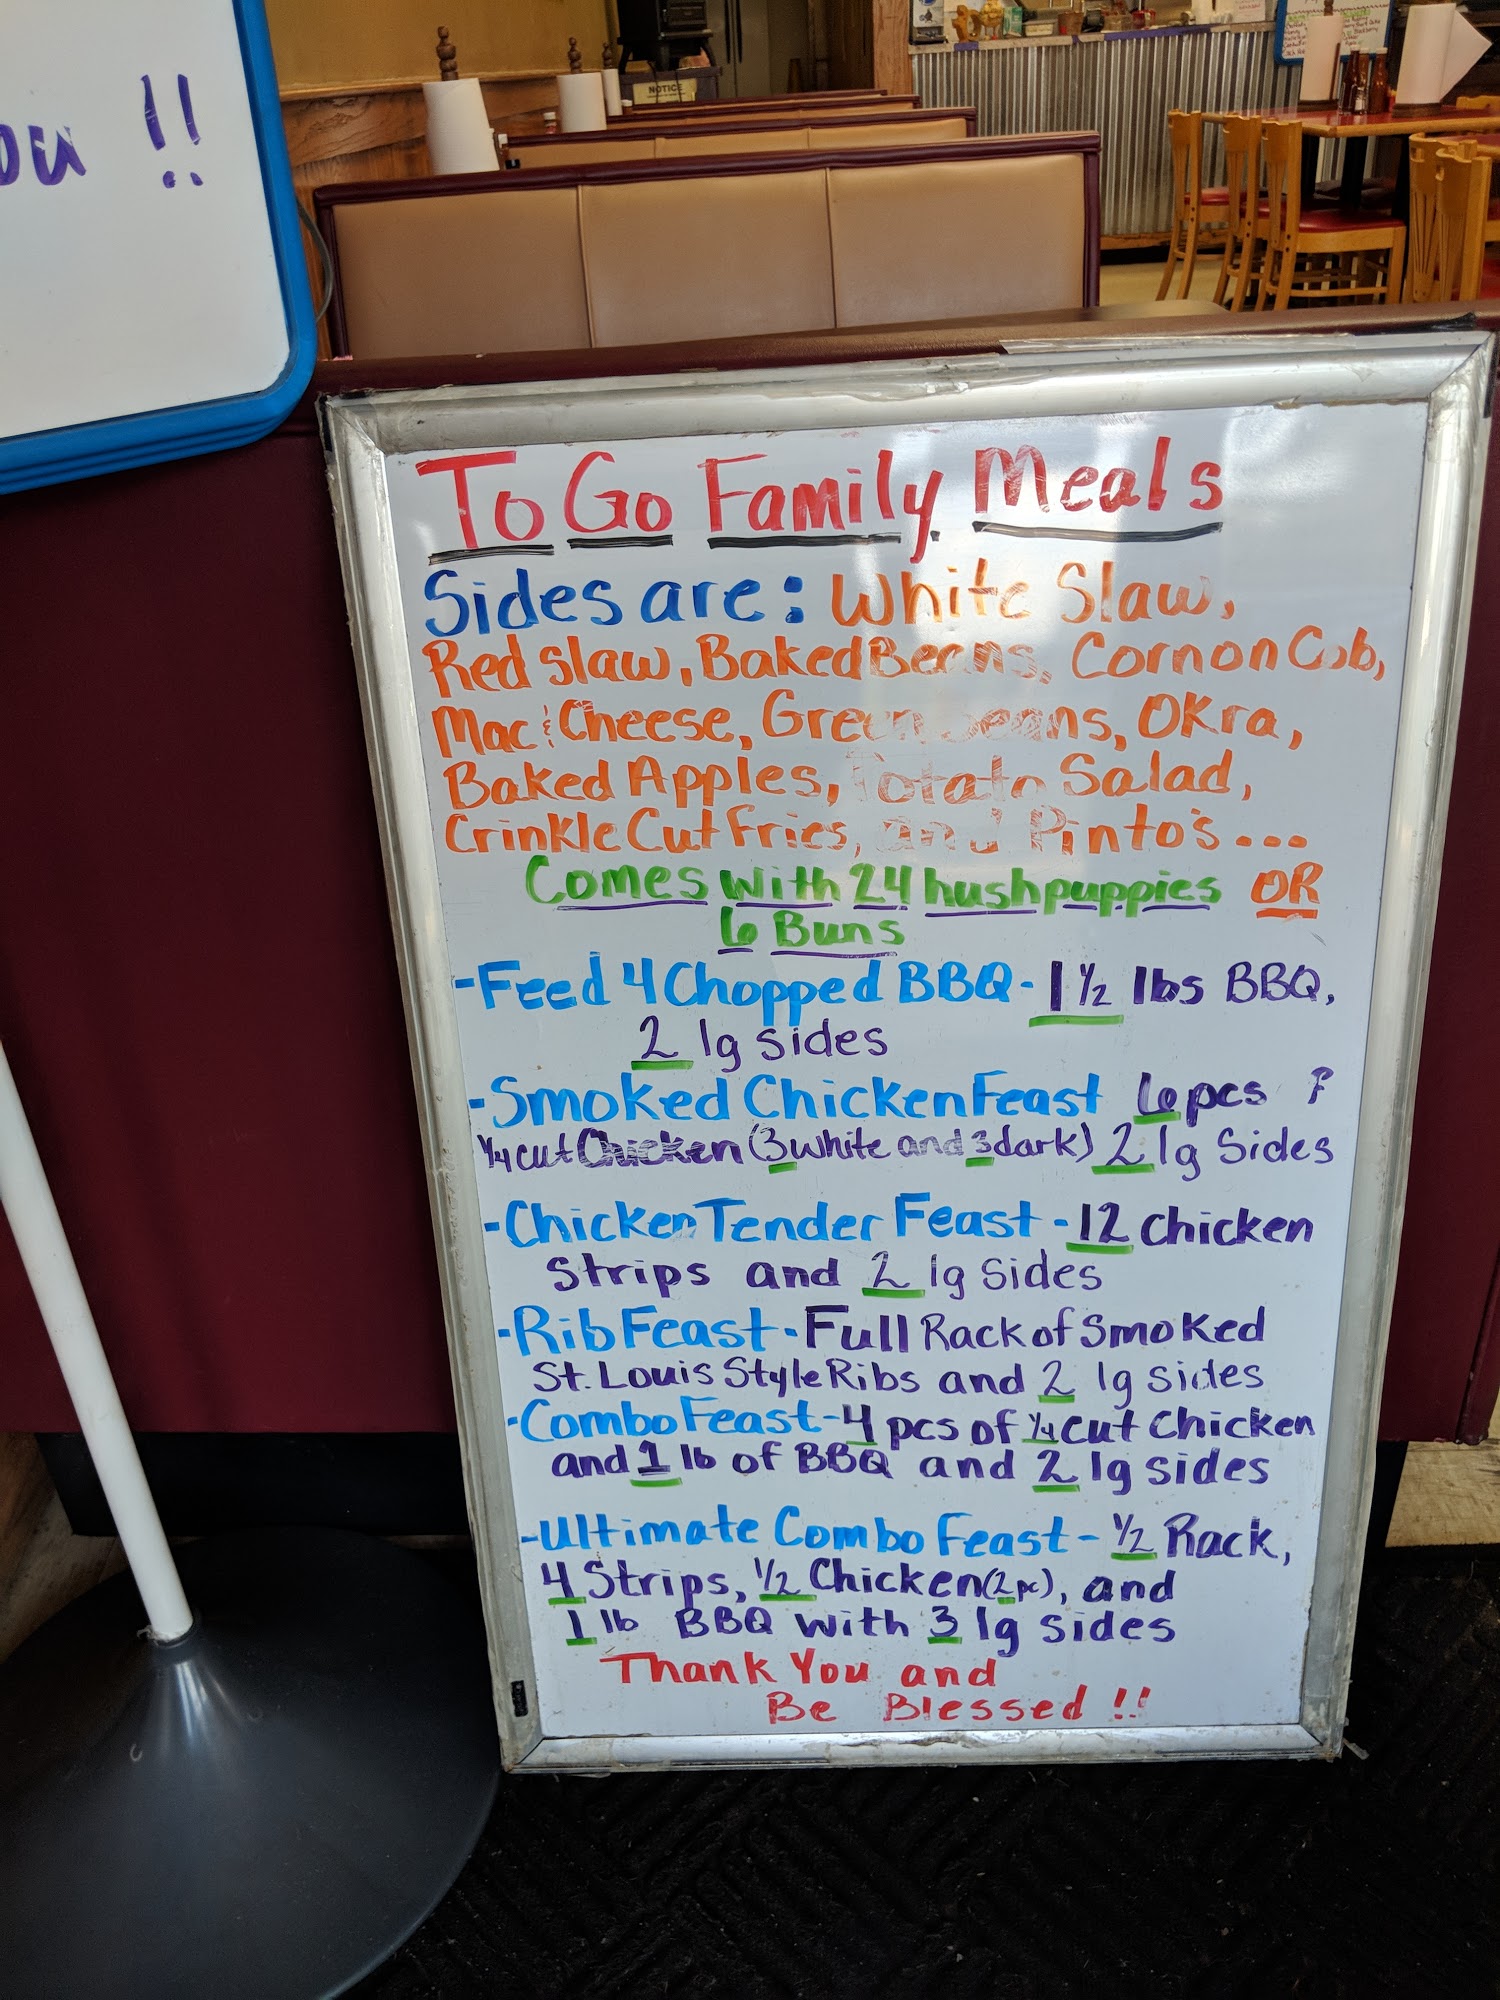 ou !!
NOTICE
To Go Family Meals
Sides are: White Slaw,
Red Slaw, Baked Beans, Corn on Cob,
Mac & Cheese, Green Beans, Okra,
Baked Apples, Potato Salad,
Crinkle Cut Fries, and Pinto's...
Comes with 24 hushpuppies OR
6 Buns
- Feed 4 Chopped BBQ - 1 1/2 lbs BBQ,
2 lg sides
- Smoked Chicken Feast 6 pcs
1/4 cut Chicken (3 white and 3 dark) 2 lg Sides
- Chicken Tender Feast - 12 Chicken
Strips and 2 lg Sides
- Rib Feast - Full Rack of Smoked
St. Louis Style Ribs and 2 lg sides
- Combo Feast - 4 pcs of 1/4 cut Chicken
and 1 lb of BBQ and 2 lg sides
- Ultimate Combo Feast - 1/2 Rack,
4 Strips, 1/2 Chicken (2 pc), and
1 lb BBQ with 3 lg sides
Thank You and
Be Blessed !!